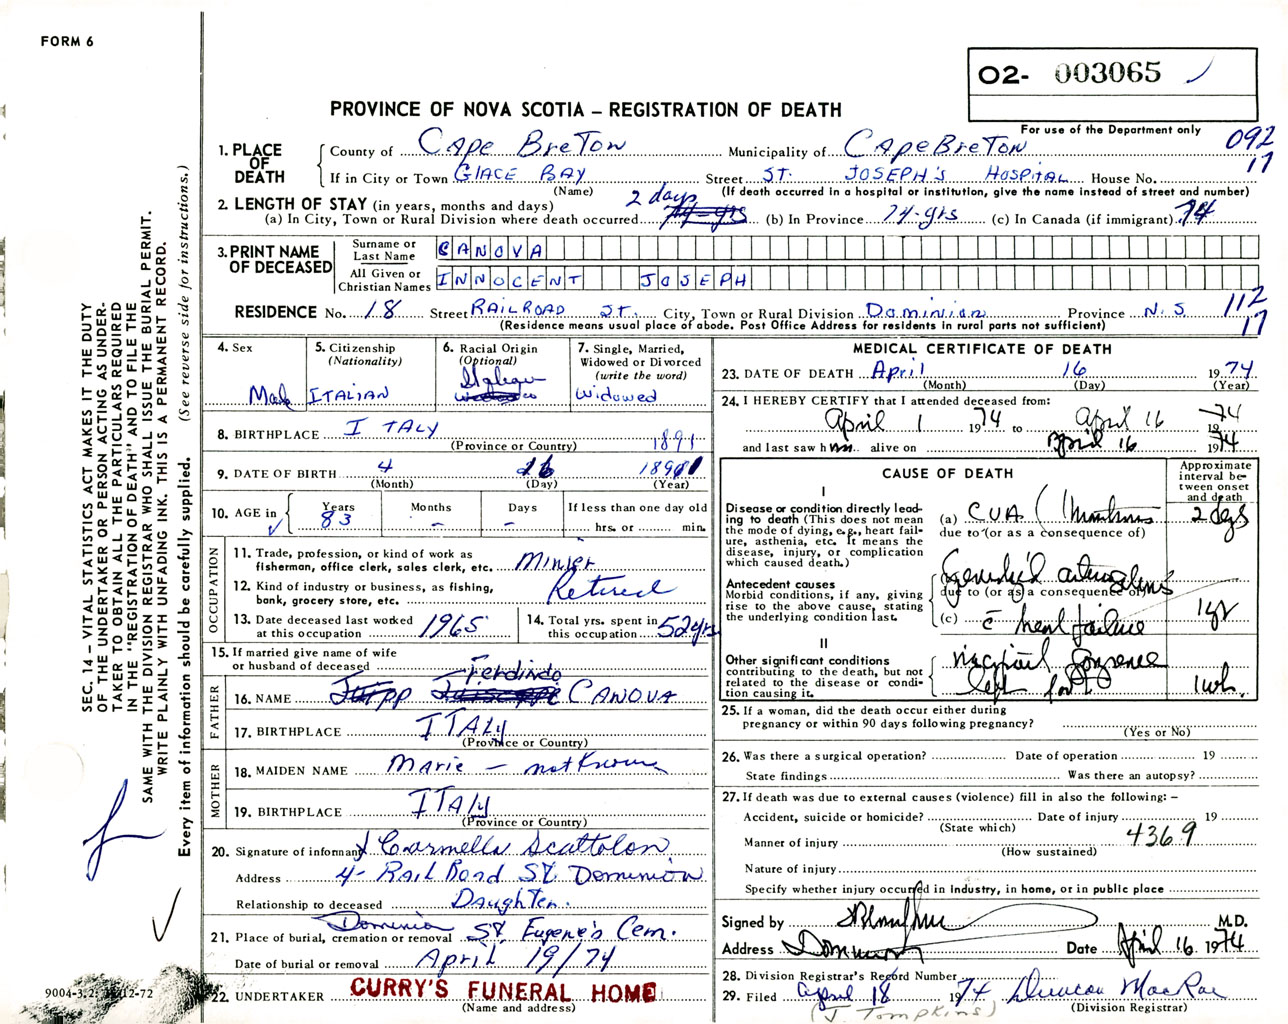 FORM 6
O2- 003065
For use of the Department only
PROVINCE OF NOVA SCOTIA – REGISTRATION OF DEATH
092
17
1. PLACE OF DEATH
County of Cape Breton Municipality of Cape Breton
If in City or Town Glace Bay Street St. Joseph's Hospital House No.
(Name) (If death occurred in a hospital or institution, give the name instead of street and number)
2. LENGTH OF STAY (in years, months and days) 2 days
(a) In City, Town or Rural Division where death occurred 74-yrs (b) In Province 74-yrs (c) In Canada (if immigrant) 74
3. PRINT NAME OF DECEASED
Surname or Last Name CANOVA
All Given or Christian Names INNOCENT JOSEPH
RESIDENCE No. 18 Street RAILROAD ST. City, Town or Rural Division Dominion Province N.S. 112
17
(Residence means usual place of abode. Post Office Address for residents in rural parts not sufficient)
4. Sex Male
5. Citizenship (Nationality) ITALIAN
6. Racial Origin (Optional)
7. Single, Married, Widowed or Divorced (write the word) Widowed
8. BIRTHPLACE ITALY
(Province or Country) 1891
9. DATE OF BIRTH 4 16 1891
(Month) (Day) (Year)
10. AGE in Years 83 Months - Days - If less than one day old hrs. or min.
OCCUPATION
11. Trade, profession, or kind of work as fisherman, office clerk, sales clerk, etc. Minier
12. Kind of industry or business, as fishing, bank, grocery store, etc. Retired
13. Date deceased last worked at this occupation 1965
14. Total yrs. spent in this occupation 52 yrs
15. If married give name of wife or husband of deceased
FATHER
16. NAME Ferdindo CANOVA
17. BIRTHPLACE ITALY
(Province or Country)
MOTHER
18. MAIDEN NAME Marie – not known
19. BIRTHPLACE ITALY
(Province or Country)
20. Signature of informant Carmella Scattolon
Address 4- Rail Road St. Dominion
Relationship to deceased Daughter.
Dominion
21. Place of burial, cremation or removal St. Eugene's Cem.
Date of burial or removal April 19/74
22. UNDERTAKER CURRY'S FUNERAL HOME
(Name and address)
MEDICAL CERTIFICATE OF DEATH
23. DATE OF DEATH April 16 1974
(Month) (Day) (Year)
24. I HEREBY CERTIFY that I attended deceased from:
April 1 1974 to April 16 1974
and last saw him alive on April 16 1974
CAUSE OF DEATH
Approximate interval between onset and death
I
Disease or condition directly leading to death (This does not mean the mode of dying, e.g., heart failure, asthenia, etc. It means the disease, injury, or complication which caused death.)
(a) CVA 2 days
due to (or as a consequence of)
Antecedent causes
Morbid conditions, if any, giving rise to the above cause, stating the underlying condition last.
due to (or as a consequence of)
(c) c̄ heart failure 1 yr
II
Other significant conditions contributing to the death, but not related to the disease or condition causing it.
left foot 1 wk.
25. If a woman, did the death occur either during pregnancy or within 90 days following pregnancy?
(Yes or No)
26. Was there a surgical operation? Date of operation 19
State findings Was there an autopsy?
27. If death was due to external causes (violence) fill in also the following: –
Accident, suicide or homicide? Date of injury 19
(State which) 4369
Manner of injury
(How sustained)
Nature of injury
Specify whether injury occurred in industry, in home, or in public place
Signed by M.D.
Address Dominion Date April 16 1974
28. Division Registrar's Record Number
29. Filed April 18 1974 Duncan MacRae
(J. Tompkins) (Division Registrar)
SEC. 14 – VITAL STATISTICS ACT MAKES IT THE DUTY
OF THE UNDERTAKER OR PERSON ACTING AS UNDER-
TAKER TO OBTAIN ALL THE PARTICULARS REQUIRED
IN THE "REGISTRATION OF DEATH" AND TO FILE THE
SAME WITH THE DIVISION REGISTRAR WHO SHALL ISSUE THE BURIAL PERMIT.
WRITE PLAINLY WITH UNFADING INK. THIS IS A PERMANENT RECORD.
Every item of information should be carefully supplied. (See reverse side for instructions.)